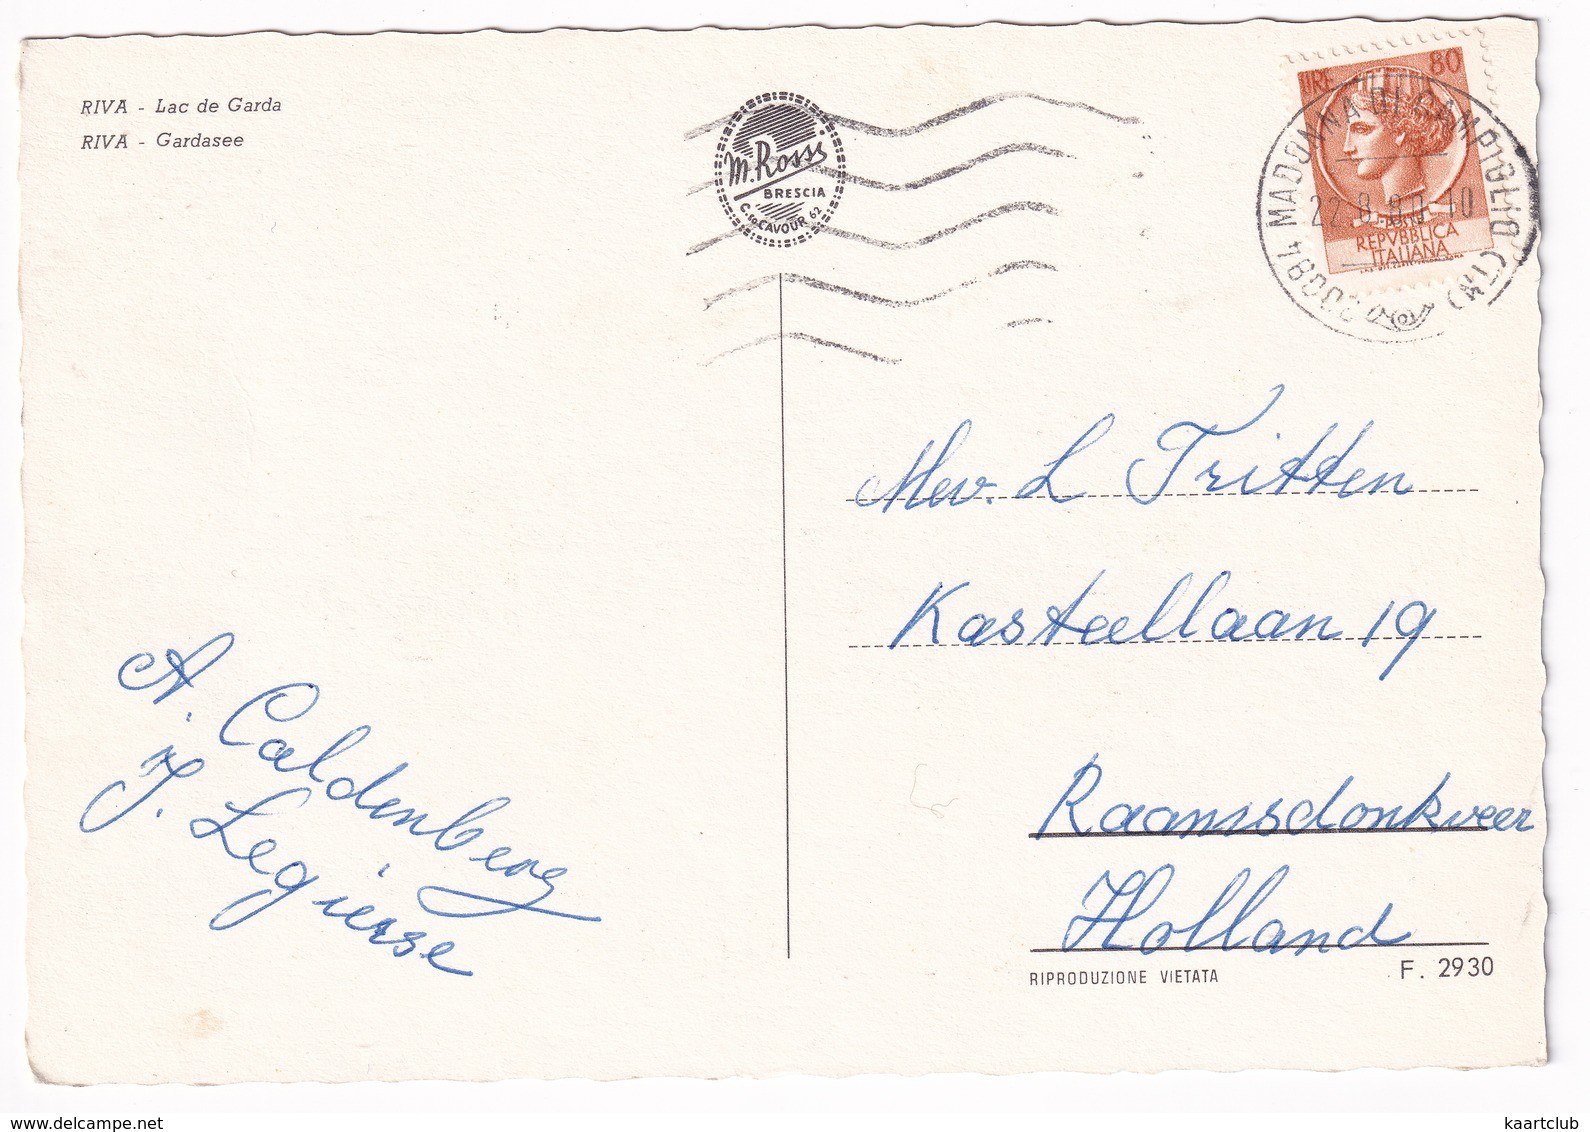 RIVA - Lac de Garda
RIVA - Gardasee
M. Rossi
BRESCIA
C.so CAVOUR 62
LIRE 80
REPVBBLICA
ITALIANA
MADONNA DI CAMPIGLIO (TN)
22.8.80.10
Mev. L Tritten
Kasteellaan 19
Raamsdonkveer
Holland
A. Caldenberg
J. Legierse
RIPRODUZIONE VIETATA
F. 2930
kaartclub